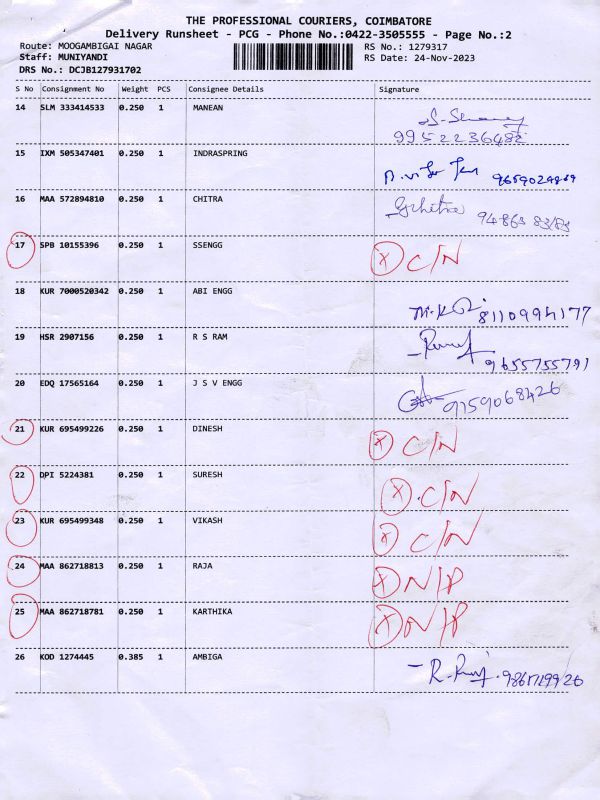 THE PROFESSIONAL COURIERS, COIMBATORE
Delivery Runsheet - PCG - Phone No.:0422-3505555 - Page No.:2
Route: MOOGAMBIGAI NAGAR RS No.: 1279317
Staff: MUNIYANDI RS Date: 24-Nov-2023
DRS No.: DCJB127931702
S No Consignment No Weight PCS Consignee Details Signature
14 SLM 333414533 0.250 1 MANEAN
9952236482
15 IXM 505347401 0.250 1 INDRASPRING
16 MAA 572894810 0.250 1 CHITRA G.Chitra
17 SPB 10155396 0.250 1 SSENGG X C/N
18 KUR 7000520342 0.250 1 ABI ENGG 8110994177
19 HSR 2907156 0.250 1 R S RAM
9655755791
20 EDQ 17565164 0.250 1 J S V ENGG 9159068426
21 KUR 695499226 0.250 1 DINESH X C/N
22 DPI 5224381 0.250 1 SURESH X C/N
23 KUR 695499348 0.250 1 VIKASH X C/N
24 MAA 862718813 0.250 1 RAJA X N/P
25 MAA 862718781 0.250 1 KARTHIKA X N/P
26 KOD 1274445 0.385 1 AMBIGA